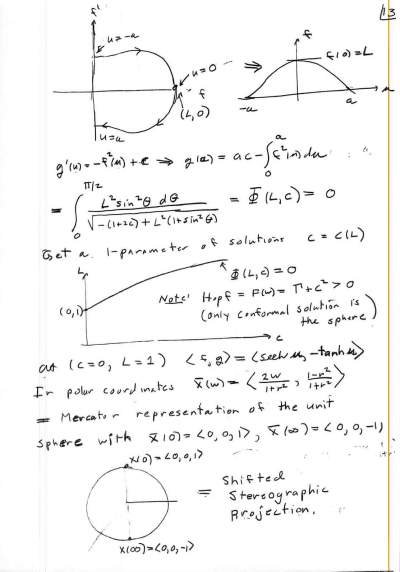 13
f'
u=-a
u=0
f
(L,0)
u=a
⇒
f
f(0)=L
u
-a
a
g'(u) = -f²(u) + c ⇒ g(a) = ac - ∫₀ᵃ f²(u) du
= ∫₀^{π/2} L² sin²θ dθ / √(-(1+2c) + L²(1+sin²θ)) = Φ(L,c) = 0
Get a 1-parameter of solutions c = c(L)
L
Φ(L,c) = 0
(0,1)
Note: Hopf = F(w) = Γ + c² > 0
(only conformal solution is
the sphere)
c
at (c=0, L=1) <f,g> = <sech u, -tanh u>
In polar coordinates X(w) = <2w/1+r², 1-r²/1+r²>
= Mercator representation of the unit
sphere with X(0) = <0,0,1>, X(∞) = <0,0,-1>
X(0) = <0,0,1>
= Shifted
Stereographic
Projection.
X(∞) = <0,0,-1>